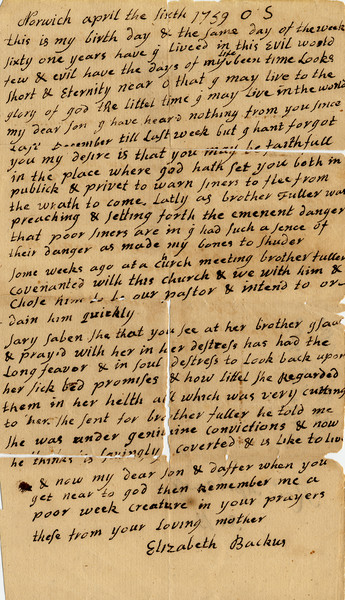 Norwich april the sixth 1759 O S
this is my birth day & the same day of the week
sixty one years have y liveed in this Evil world
few & evil have the days of my life been time Looks
short & Eternity near O that y may live to the
glory of god the littel time y may live in the world
my dear son y have heard nothing from you since
Last December till Last week but y hant forgot
you my desire is that you may be faithfull
in the place where god hath set you both in
publick & privet to warn siners to flee from
the wrath to come. Latly as brother Fuller was
preaching & setting forth the emenent danger
that poor siners are in y had such a sence of
their danger as made my bones to shuder
some weeks ago at a curch meeting brother fuller
covenanted with this church & we with him &
Chose him to be our pastor & intend to or-
dain him quickly
sary saben she that you see at her brother
& pray'd with her in her destress has had the
Long feavor & in soul destress to Look back upon
her sick bed promises & how littel she regarded
them in her helth all which was very cutting
to her. she sent for brother fuller he told me
she was under genuine convictions & now
he thinks is savingly coverted & is like to live
& now my dear son & dafter when you
get near to god then remember me a
poor week creature in your prayers
these from your Loving mother
Elizabeth Backus